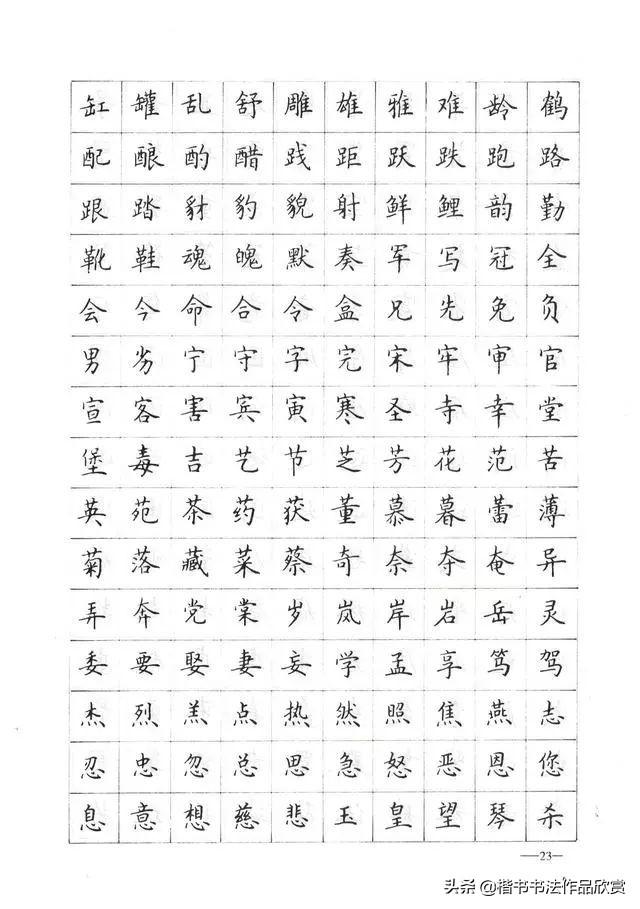 缸罐乱舒雕雄雅难龄鹤
配酿酌醋践距跃跌跑路
跟踏豺豹貌射鲜鲤韵勤
靴鞋魂魄默奏军写冠全
会今命合令盒兄先免负
男劣宁守字完宋牢审官
宣客害宾寅寒圣寺幸堂
堡毒吉艺节芝芳花范苦
英苑茶药获董慕暮蕾薄
菊落藏菜蔡奇奈夺奄异
弄奔党棠岁岚岸岩岳灵
委要娶妻妄学孟享笃驾
杰烈羔点热然照焦燕志
忍忠忽总思急怒恶恩您
息意想慈悲玉皇望琴杀
—23—
头条@楷书书法作品欣赏